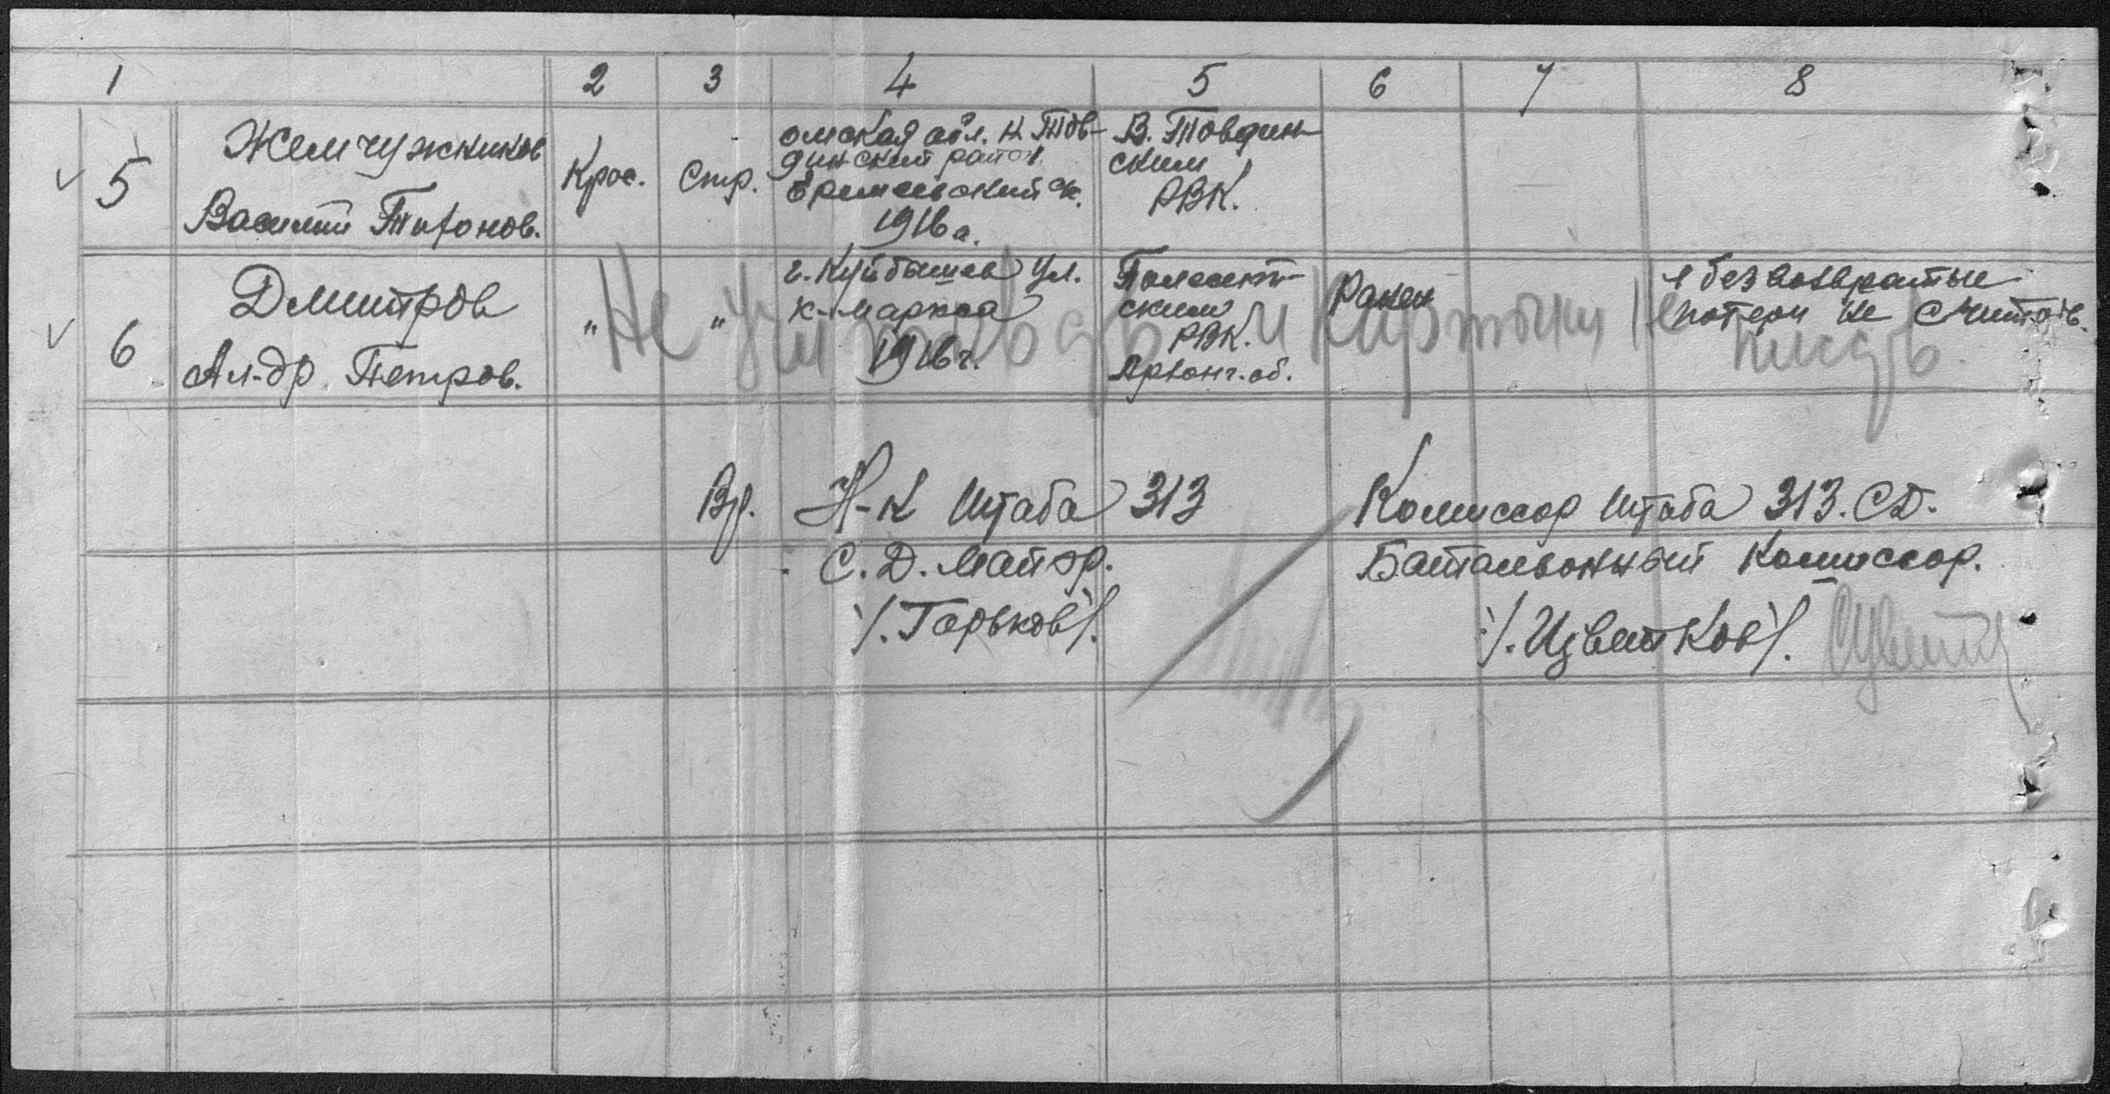 1 2 3 4 5 6 7 8
5 Жемчужников Василий Тихонов.
Крас.
Стр.
омская обл. Н. Тав-
динский район
Еремеевский с/с.
1916 г.
В. Тавдин
ским
РВК.
6 Дмитров
Ал-др. Петров.
" "
г. Куйбышев ул.
К-Маркса
1916 г.
ским
РВК.
Архонг. об.
Ранен
в безвозвратные
потери не считать.
Не и карточки не
писать.
Вр. Н-К Штаба 313
С. Д. Майор.
/. Горьков /.
Комиссар Штаба 313. СД.
Батальонный Комиссар.
/. Цветков /.